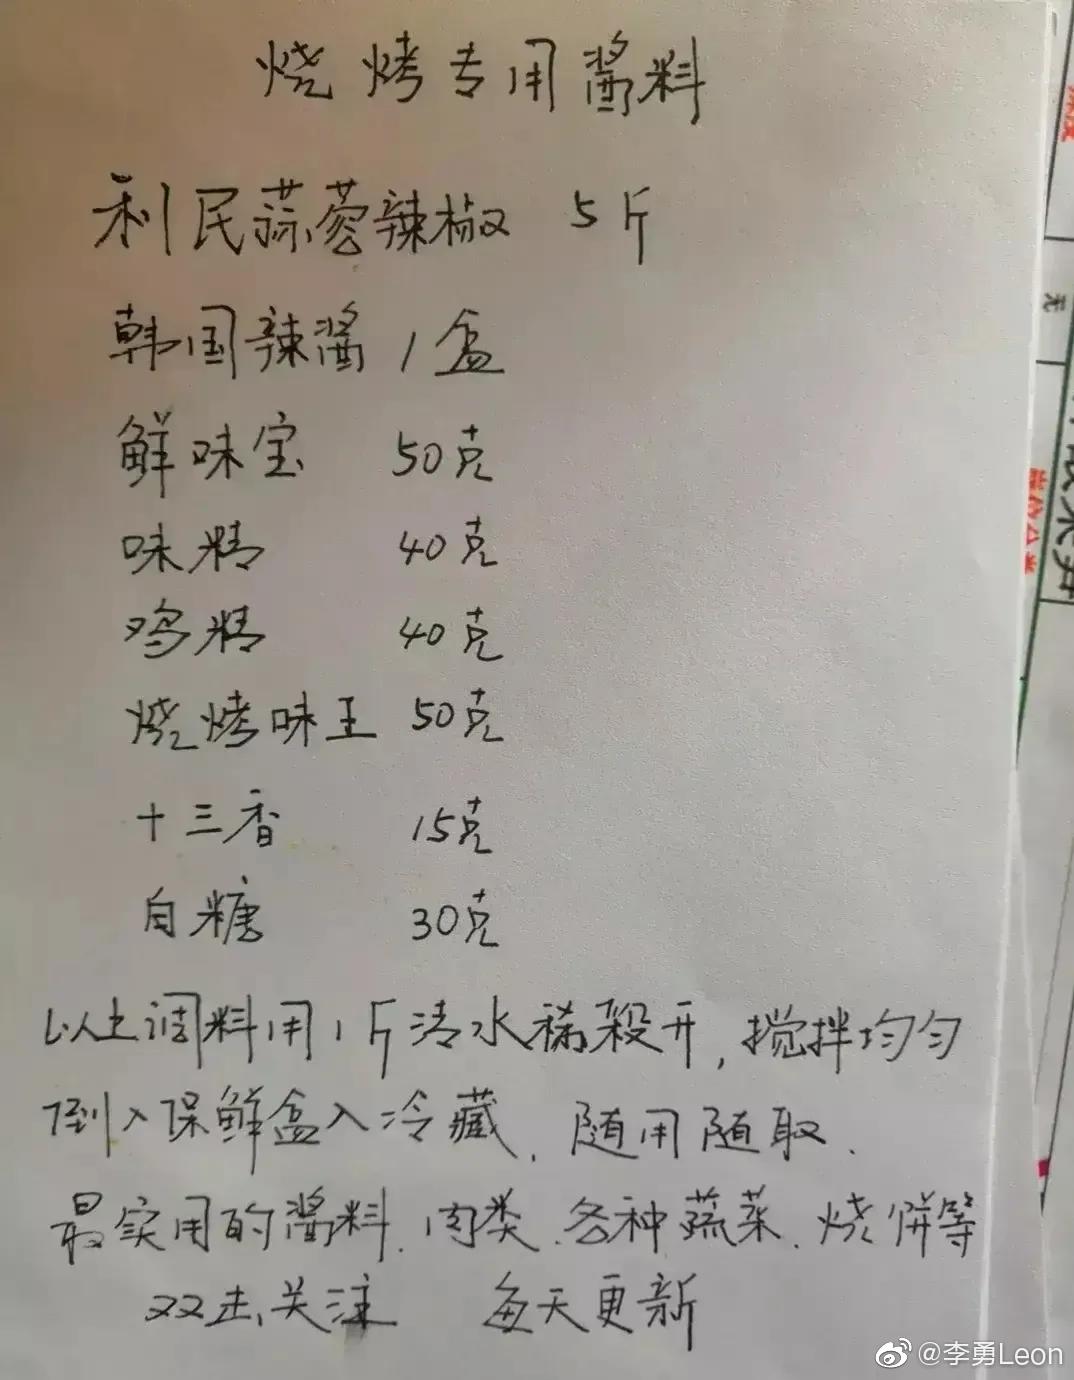 烧烤专用酱料
利民蒜蓉辣椒 5斤
韩国辣酱 1盒
鲜味宝 50克
味精 40克
鸡精 40克
烧烤味王 50克
十三香 15克
白糖 30克
以上调料用1斤清水稀释开,搅拌均匀
倒入保鲜盒入冷藏,随用随取.
最实用的酱料.肉类.各种蔬菜.烧饼等
双击关注 每天更新
无
@李勇Leon